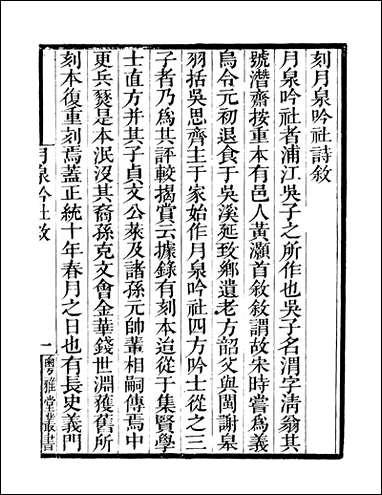 刻月泉吟社詩敘
月泉吟社者浦江吳子之所作也吳子名渭字清翁其
號潛齋按重本有邑人黃灝首敘敘謂故宋時嘗為義
烏令元初退食于吳溪延致鄉遺老方韶父與閩謝皐
羽括吳思齊主于家始作月泉吟社四方吟士從之三
子者乃為其評較揭賞云據錄有刻本迨從于集賢學
士直方并其子貞文公萊及諸孫元帥輩相嗣傳焉中
更兵燹是本泯沒其裔孫克文會金華錢世淵獲舊所
刻本復重刻焉蓋正統十年春月之日也有長史義門
月泉吟社敘
一
粵雅堂叢書